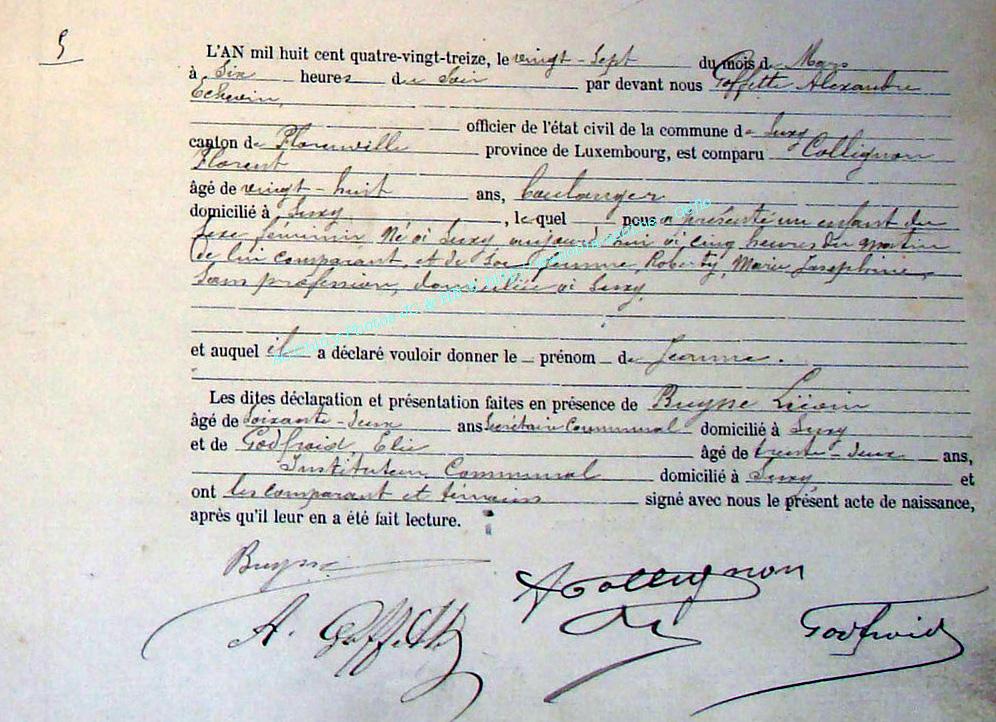 5
L'AN mil huit cent quatre-vingt-treize, le vingt-sept du mois de Mars
à Six heures du Soir par devant nous Goffette Alexandre
Echevin,
officier de l'état civil de la commune de Suxy
canton de Florenville province de Luxembourg, est comparu Collignon
Florent
âgé de vingt-huit ans, boulanger
domicilié à Suxy, lequel nous a présenté un enfant du
Sexe féminin, Né à Suxy, aujourd'hui à cinq heures du matin
de lui comparant, et de Son femme, Roberty, Marie Joséphine,
Sans profession, domiciliée à Suxy.
et auquel il a déclaré vouloir donner le prénom de Jeanne.
Les dites déclaration et présentation faites en présence de Buysse Liévin
âgé de Soixante-deux ans Secrétaire Communal domicilié à Suxy
et de Godfroid, Elie âgé de trente-deux ans,
Instituteur Communal domicilié à Suxy et
ont les comparant et témoins signé avec nous le présent acte de naissance,
après qu'il leur en a été fait lecture.
Buysse
Collignon
A. Goffette
Godfroid